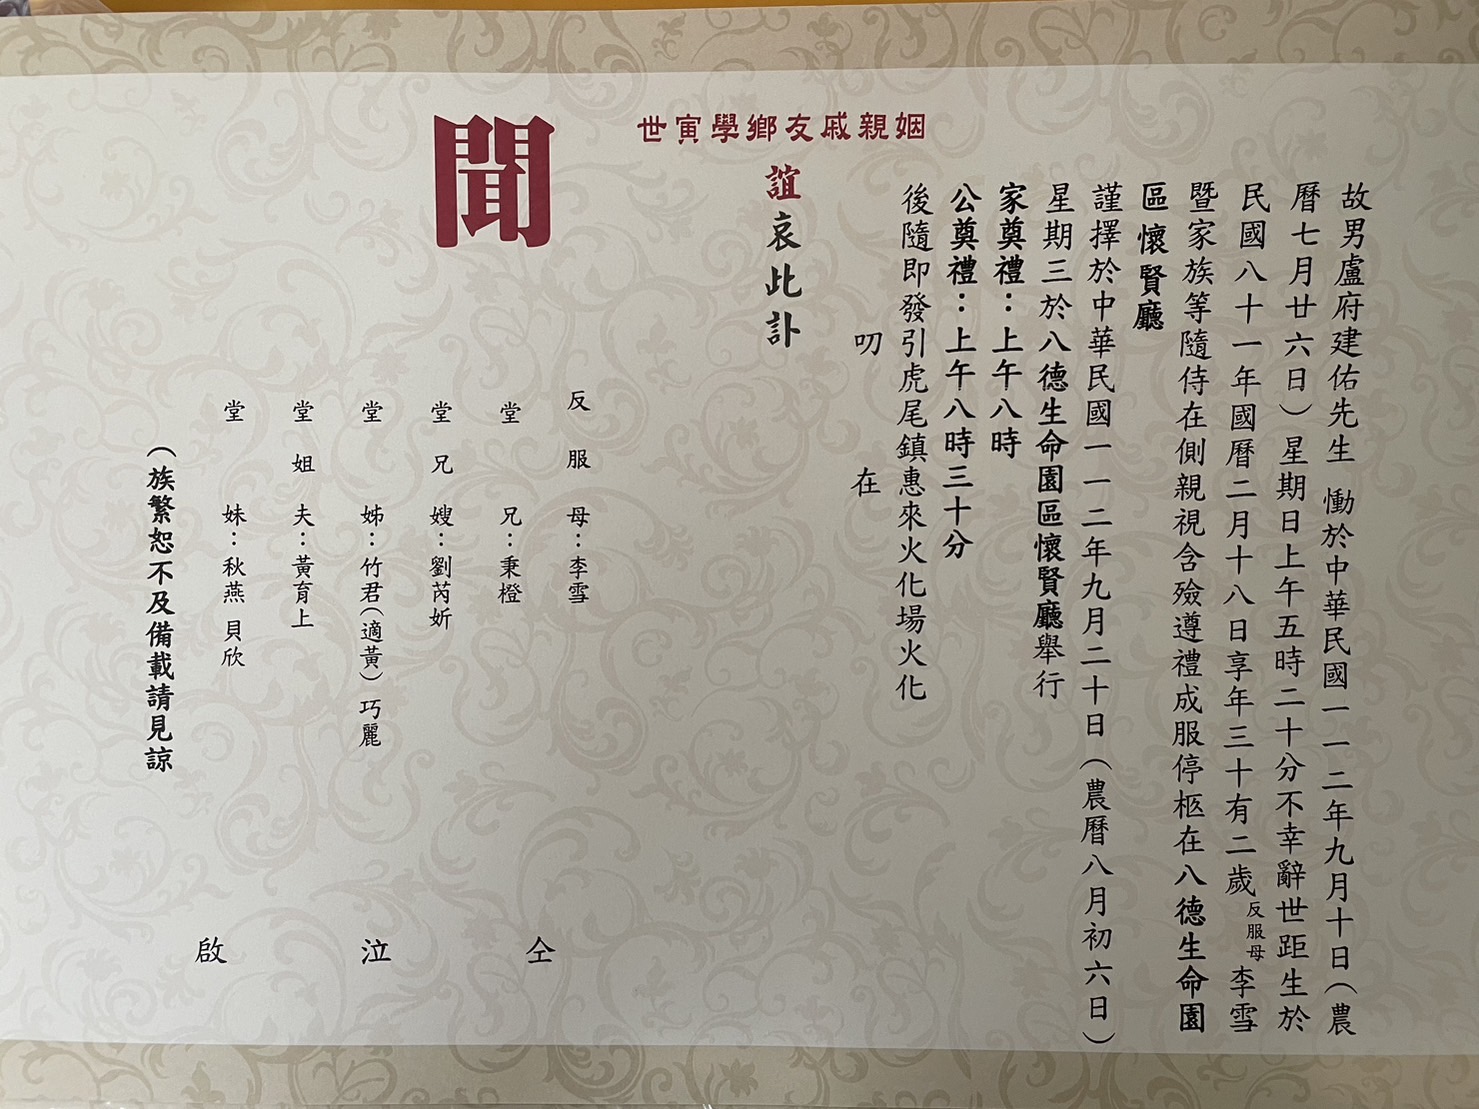 故男盧府建佑先生 慟於中華民國一一二年九月十日(農
曆七月廿六日)星期日上午五時二十分不幸辭世距生於
民國八十一年國曆二月十八日享年三十有二歲反服母李雪
暨家族等隨侍在側親視含殮遵禮成服停柩在八德生命園
區懷賢廳
謹擇於中華民國一一二年九月二十日(農曆八月初六日)
星期三於八德生命園區懷賢廳舉行
家奠禮：上午八時
公奠禮：上午八時三十分
後隨即發引虎尾鎮惠來火化場火化
叨 在
世寅學鄉友戚親姻
誼哀此訃
聞
反服母：李雪
堂兄：秉橙
堂兄嫂：劉芮妡
堂姊：竹君(適黃) 巧麗
堂姐夫：黃育上
堂妹：秋燕 貝欣
(族繁恕不及備載請見諒
仝 泣 啟